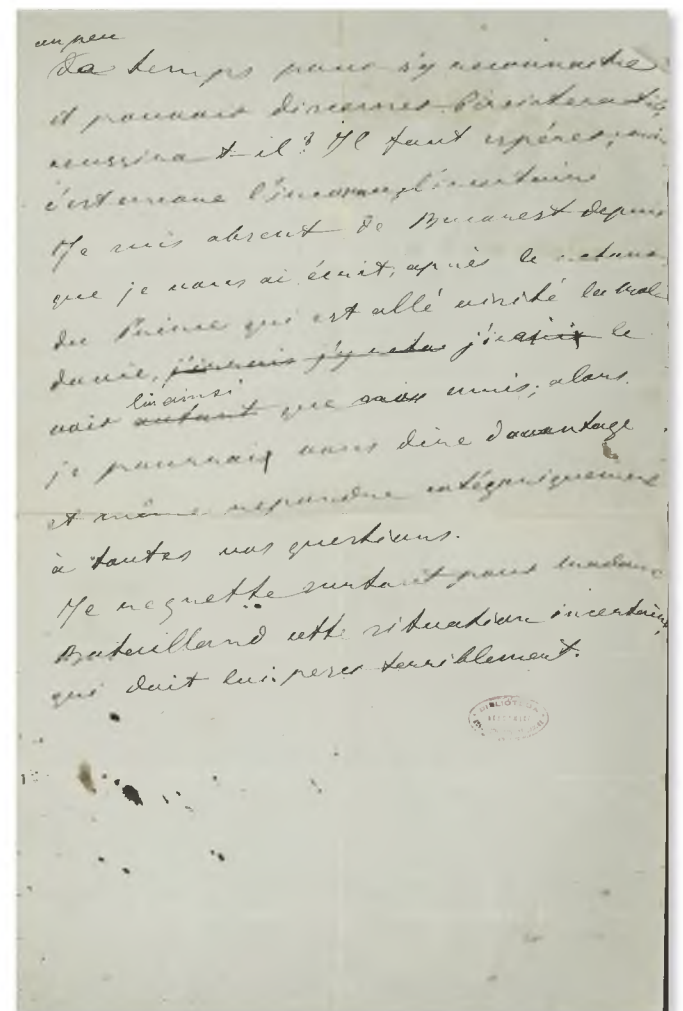 un peu
da temps pour s'y reconnaitre
et pouvoir discerner. Persistera-t-il,
reussira t-il? Il faut espérer, mais
c'est encore l'inconnu, l'incertain
Je suis absent de Bucarest depuis
que je vous ai écrit, après le retour
du Prince qui est allé visité la Mol
davie, j'irais j'y j'irais le
voir lui ainsi autant que vous amis; alors
je pourrais vous dire davantage
et même repondre catégoriquement
à toutes vos questions.
Je regrette surtout pour madame
Bataillard cette situation incertaine,
qui doit lui peser terriblement.
BIBLIOTECA